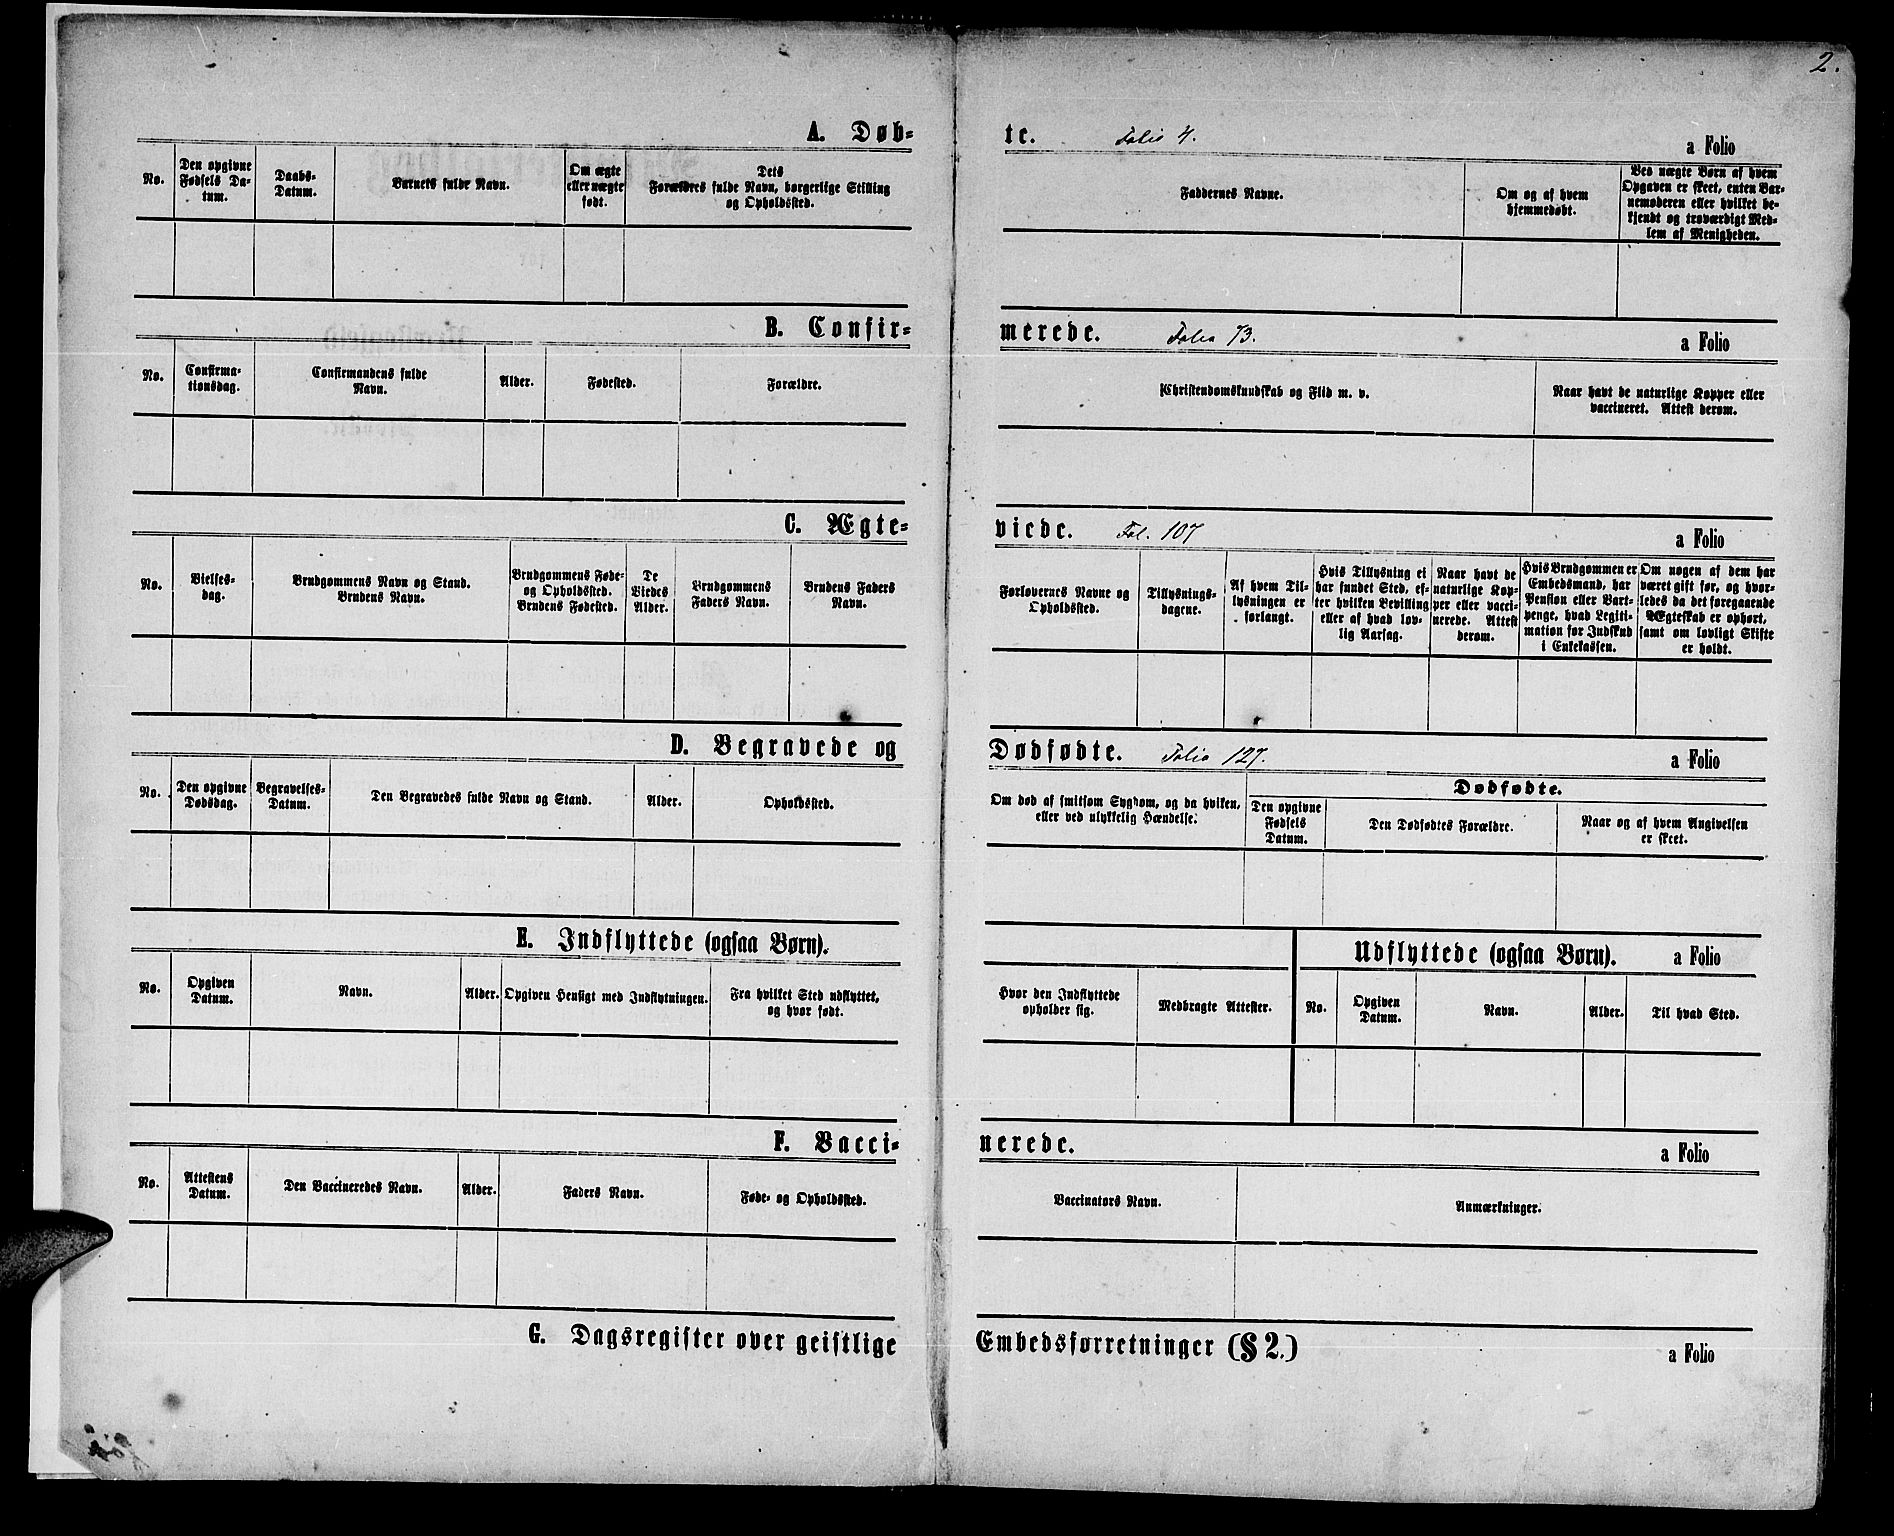 2.
A. Døb-
te. Folio 4. a Folio
No.
Den opgivne
Fødsels Da-
tum.
Daabs-
Datum.
Barnets fulde Navn.
Om ægte
eller uægte
født.
Dets
Forældres fulde Navn, borgerlige Stilling
og Opholdssted.
Faddernes Navne.
Om og af hvem
hjemmedøbt.
Ved uægte Børn af hvem
Opgaven er skeet, enten Bar-
nemoderen eller hvilket be-
kjendt og troværdigt Med-
lem af Menigheden.
B. Confir-
merede. Folio 73. a Folio
No.
Confirma-
tionsdag.
Confirmandens fulde
Navn.
Alder.
Fødested.
Forældre.
Christendomskundskab og Flid m. v.
Naar havt de naturlige Kopper eller
vaccineret. Attest derom.
C. Ægte-
viede. Fol. 107 a Folio
No.
Vielses-
dag.
Brudgommens Navn og Stand.
Brudens Navn.
Brudgommens Føde-
og Opholdssted.
Brudens Fødested.
De
Viedes
Alder.
Brudgommens
Faders Navn.
Brudens Faders
Navn.
Forlovernes Navne og
Opholdssted.
Tillysnings-
dagene.
Af hvem Til-
lysningen er
forlangt.
Hvis Tillysning ei
har fundet Sted, ef-
ter hvilken Bevilling
eller af hvad lov-
lig Aarsag.
Naar havt de
naturlige Kop-
per eller vacci-
nerede. Attest
derom.
Hvis Brudgommen er
Embedsmand, har
Pension eller Vart-
penge, hvad Legiti-
mation for Indskud
i Enkekassen.
Om nogen af dem har
været gift før, og hvor-
ledes da det foregaaende
Ægteskab er ophørt,
samt om lovligt Skifte
er holdt.
D. Begravede og
Dødfødte. Folio 127. a Folio
No.
Den opgivne
Dødsdag.
Begravelses-
Datum.
Den Begravedes fulde Navn og Stand.
Alder.
Opholdssted.
Om død af smitsom Sygdom, og da hvilken,
eller ved ulykkelig Hændelse.
Dødfødte.
Den opgivne
Fødsels
Datum.
Den Dødfødtes Forældre.
Naar og af hvem Angivelsen
er skeet.
E. Indflyttede (ogsaa Børn).
Udflyttede (ogsaa Børn). a Folio
No.
Opgiven
Datum.
Navn.
Alder.
Opgiven Hensigt med Indflytningen.
Fra hvilket Sted udflyttet,
og hvor født.
Hvor den Indflyttede
opholder sig.
Medbragte Attester.
No.
Opgiven
Datum.
Navn.
Alder.
Til hvad Sted.
F. Vacci-
nerede. a Folio
No.
Attestens
Datum.
Den Vaccineredes Navn.
Alder.
Faders Navn.
Føde- og Opholdssted.
Vaccinators Navn.
Anmærkninger.
G. Dagsregister over geistlige
Embedsforretninger (§ 2.) a Folio